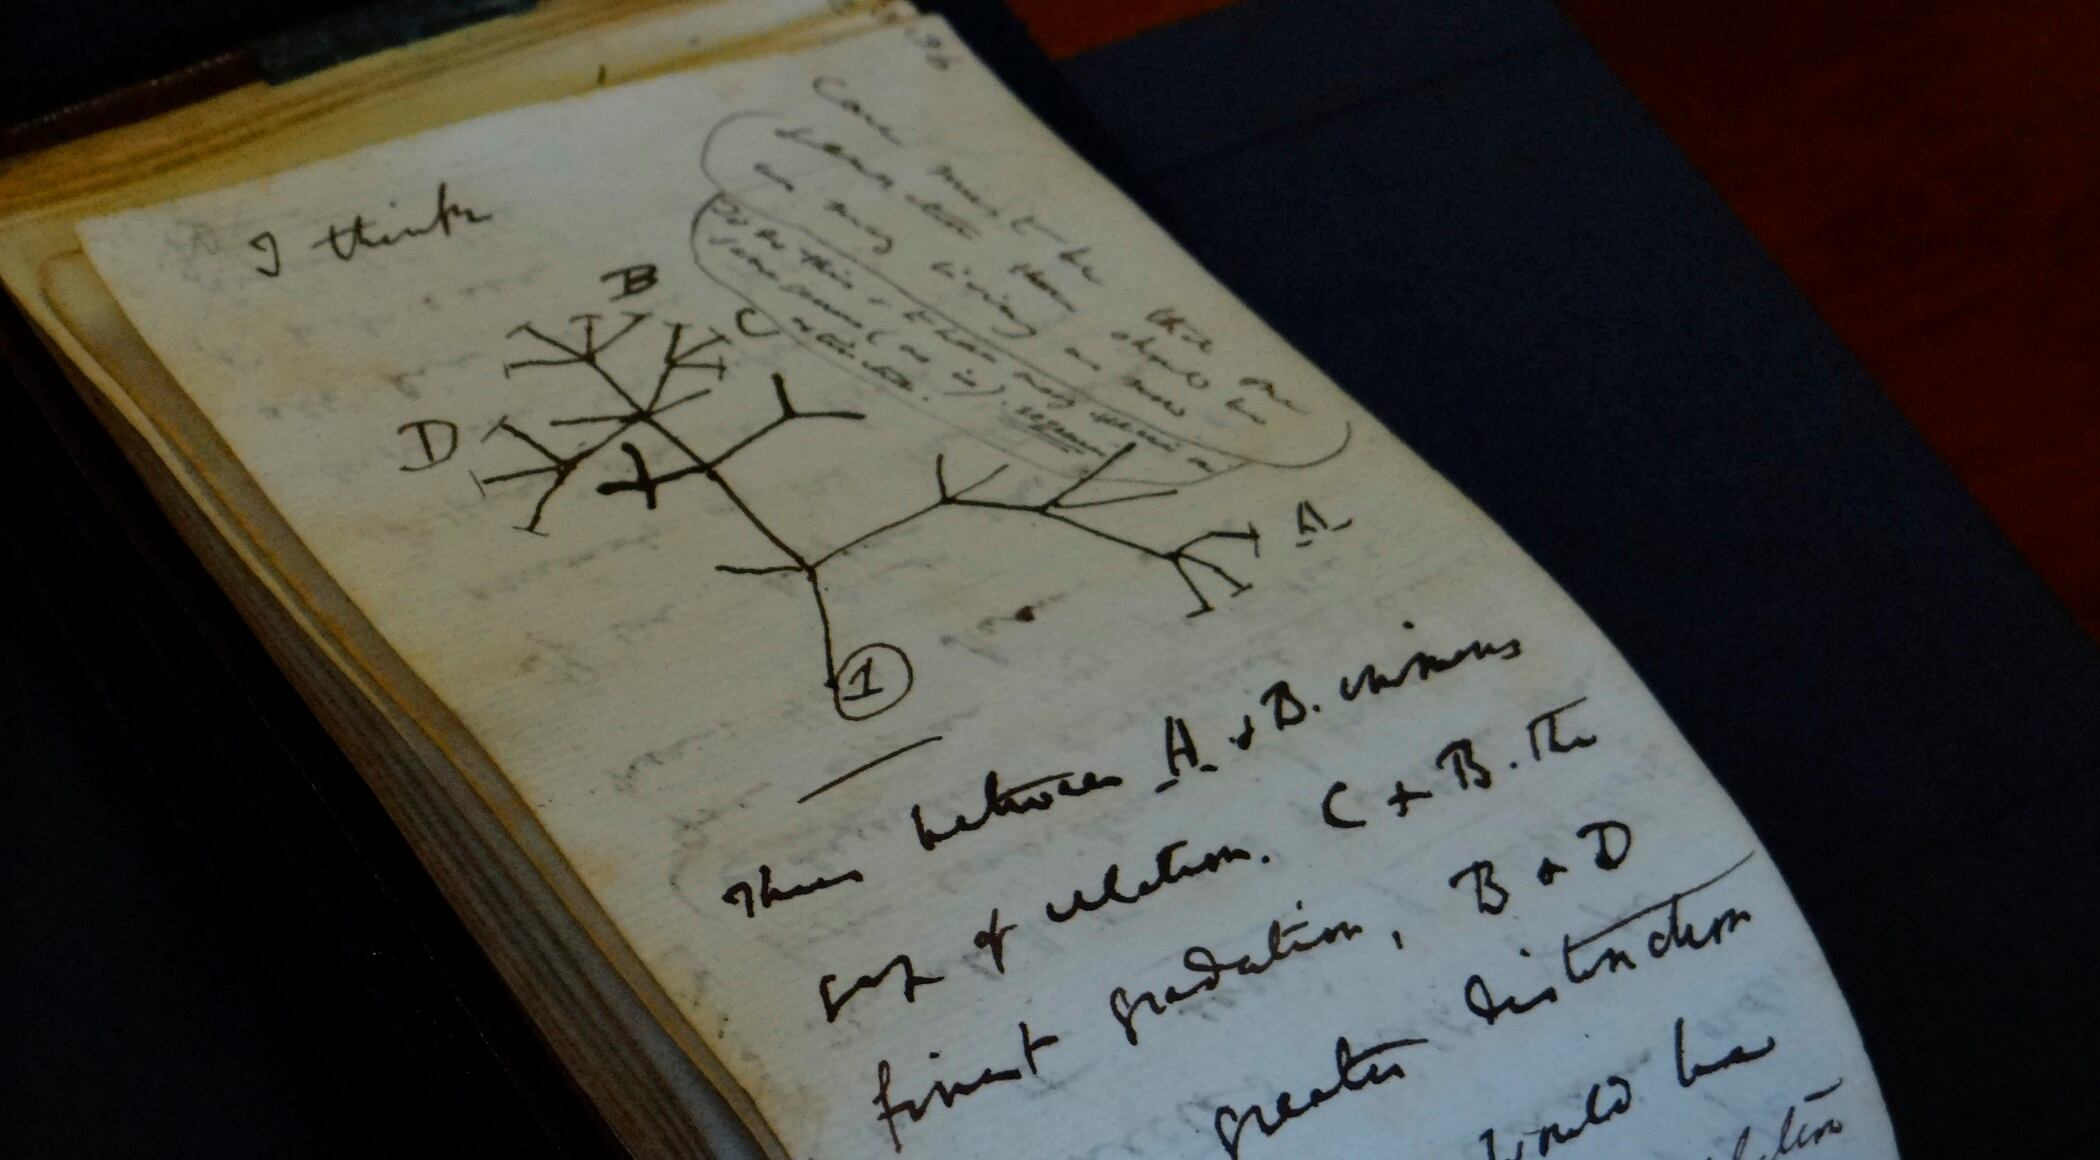 36
I think
Case must be that one
generation then should be
as many living as now
To do this & to have many species in
same genus (as is) requires
extinction.
B
C
D
A
1
Thus between A & B. immens
gap of relation. C & B. The
finest gradation, B & D
greater distinction
would be
relation